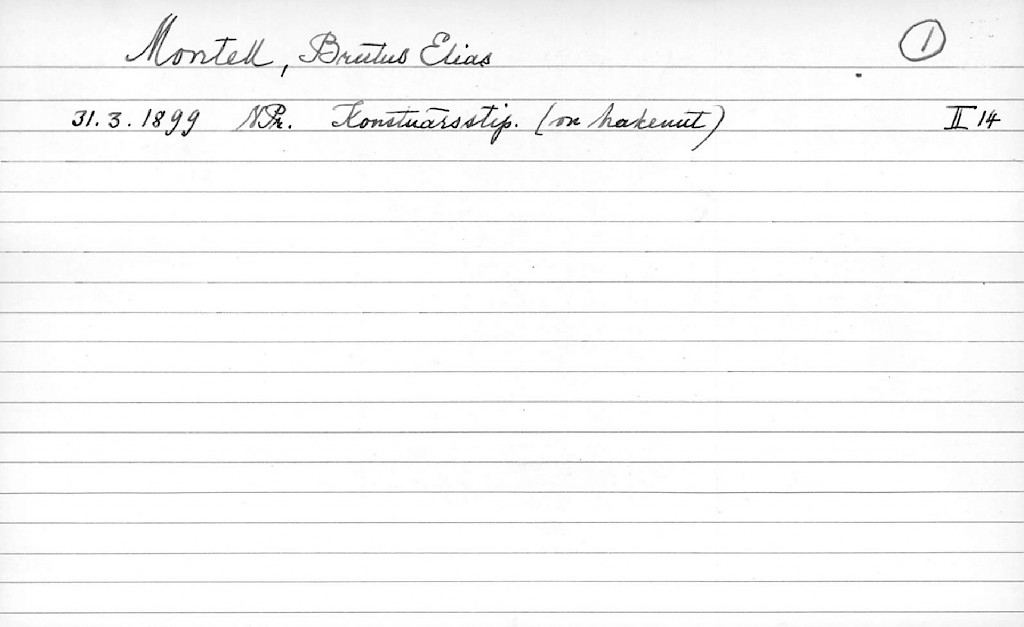 Montell, Brutus Elias ①
31.3.1899 NPr. Konstnärsstip. (on hakenut) II 14